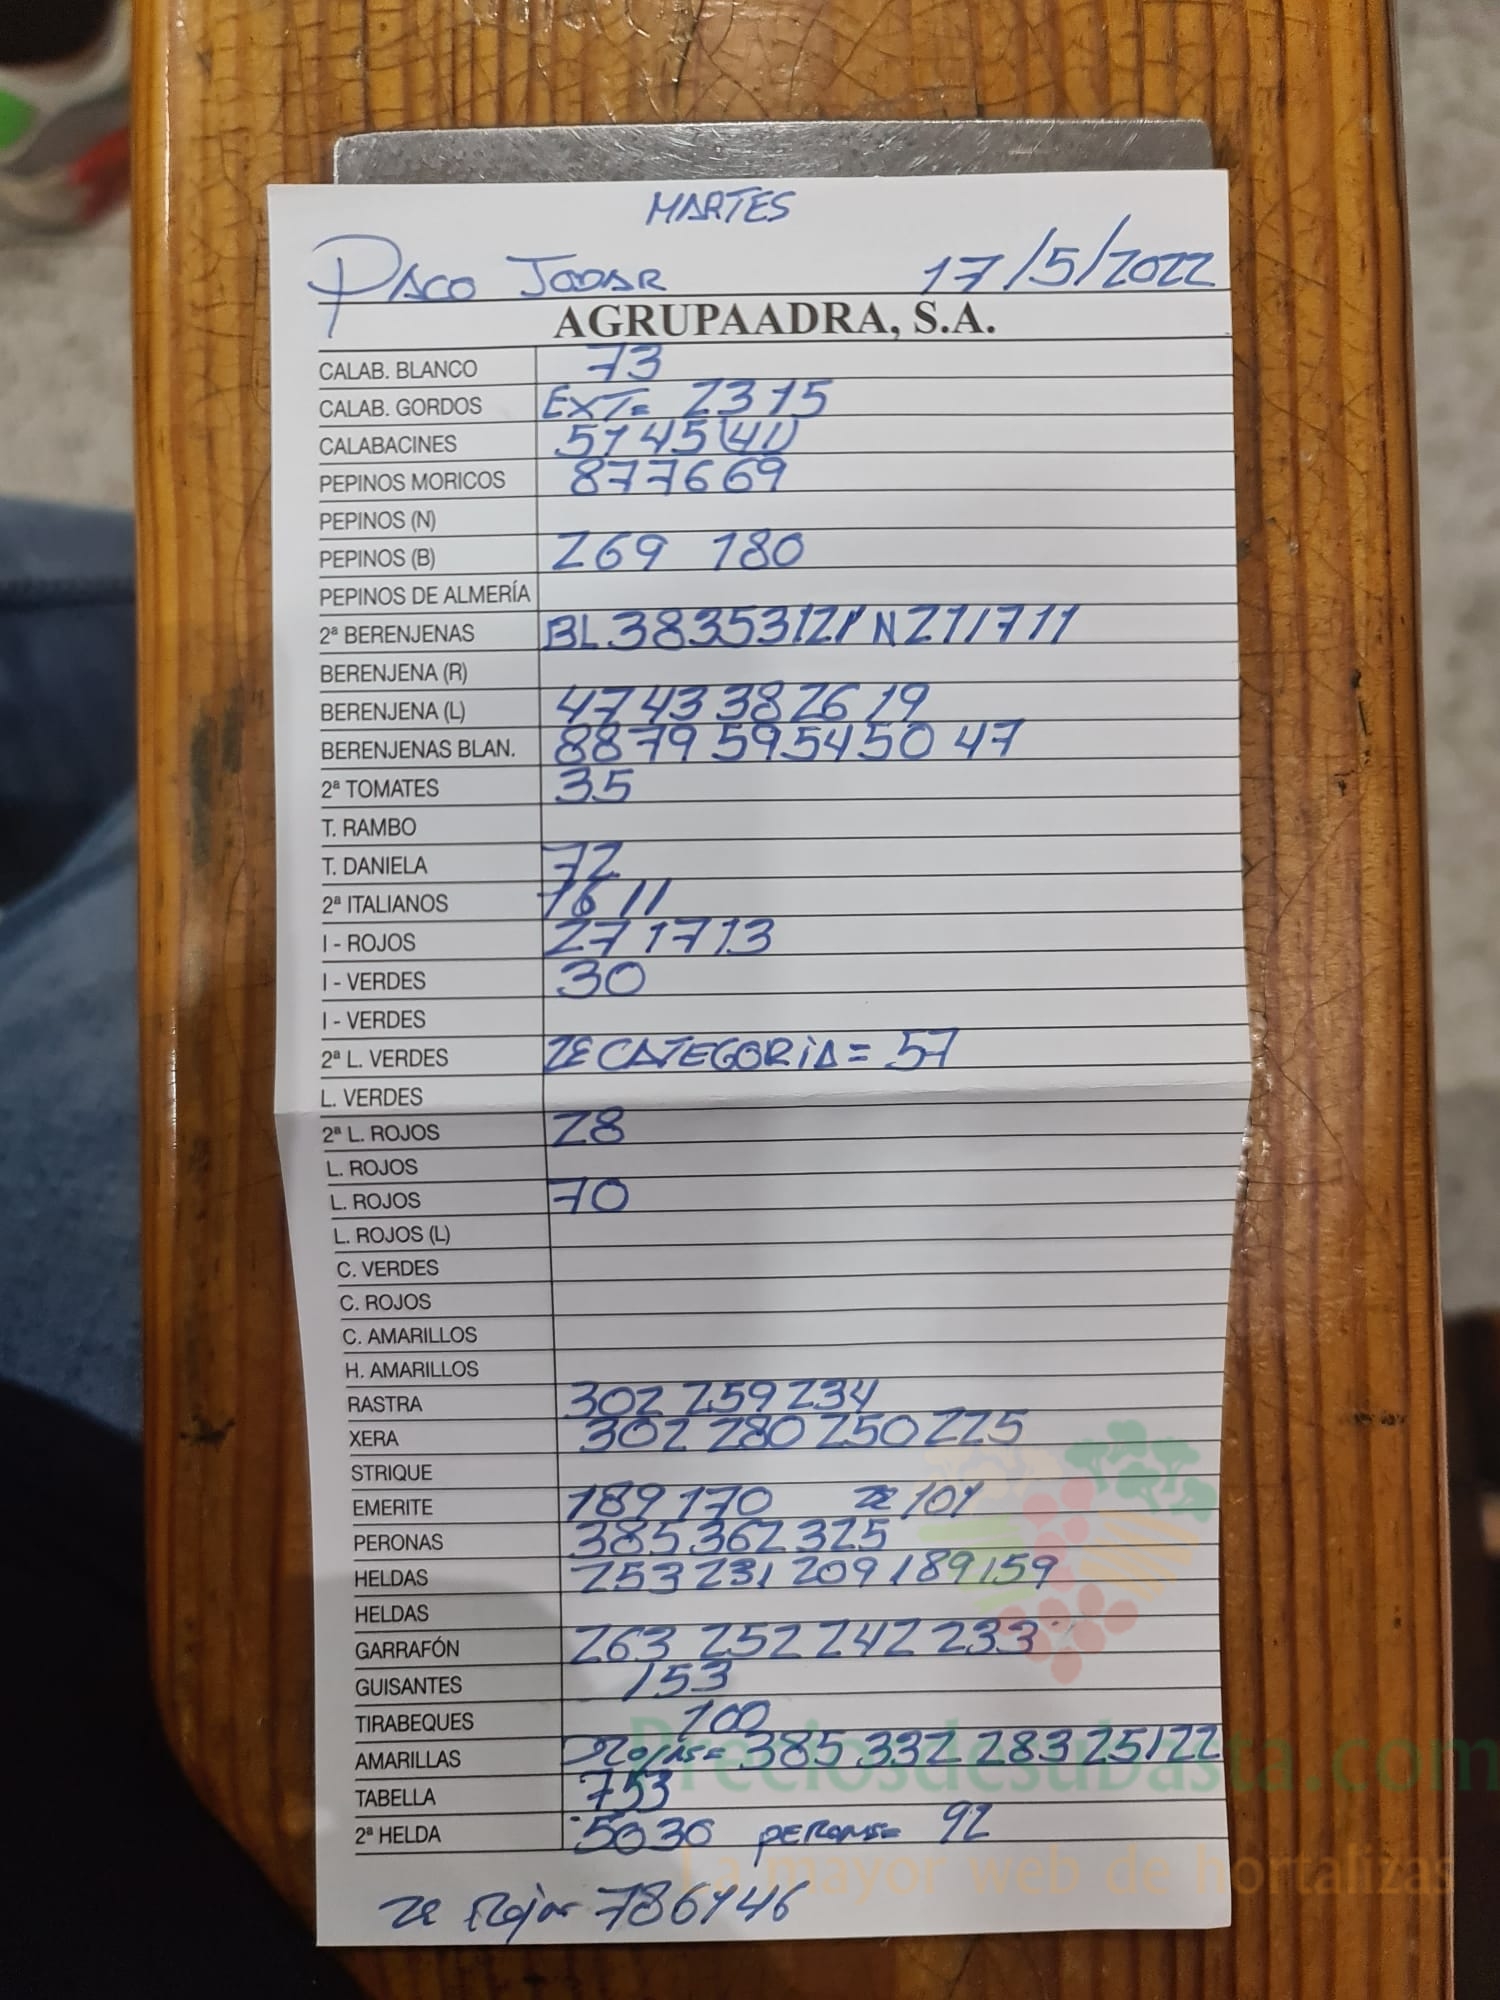 MARTES
PACO JODAR 17/5/2022
AGRUPAADRA, S.A.
CALAB. BLANCO 73
CALAB. GORDOS EXT= 23 15
CALABACINES 51 45 (41)
PEPINOS MORICOS 87 76 69
PEPINOS (N)
PEPINOS (B) 269 180
PEPINOS DE ALMERÍA
2ª BERENJENAS BL 38 35 31 21 / N 21 17 11
BERENJENA (R)
BERENJENA (L) 47 43 38 26 19
BERENJENAS BLAN. 88 79 59 54 50 47
2ª TOMATES 35
T. RAMBO
T. DANIELA 72
2ª ITALIANOS 16 11
I - ROJOS 27 17 13
I - VERDES 30
I - VERDES
2ª L. VERDES 2ª CATEGORIA = 57
L. VERDES
2ª L. ROJOS 28
L. ROJOS
L. ROJOS 70
L. ROJOS (L)
C. VERDES
C. ROJOS
C. AMARILLOS
H. AMARILLOS
RASTRA 302 259 234
XERA 302 280 250 225
STRIQUE
EMERITE 189 170 2ª 101
PERONAS 385 362 325
HELDAS 253 231 209 189 159
HELDAS
GARRAFÓN 263 252 242 233
GUISANTES 153
TIRABEQUES 100
AMARILLAS Rojas= 385 332 283 251 22
TABELLA 153
2ª HELDA 50 30 PERONAS= 92
2ª Rojas
Preciosdesubasta.com
La mayor web de hortalizas